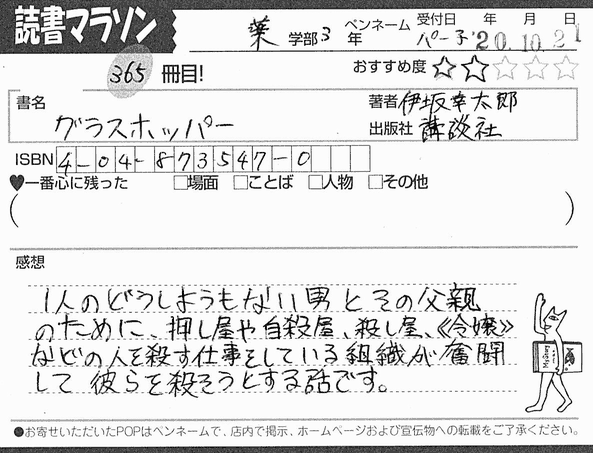 読書マラソン
薬 学部 3 年
ペンネーム パー子
受付日 年 月 日
'20.10.21
365 冊目!
おすすめ度 ★★☆☆☆
書名 グラスホッパー
著者 伊坂幸太郎
出版社 講談社
ISBN 4-04-873547-0
♥一番心に残った □場面 □ことば □人物 □その他
( )
感想
1人のどうしようもない男とその父親
のために、押し屋や自殺屋、殺し屋、《令嬢》
などの人を殺す仕事をしている組織が奮闘
して彼らを殺そうとする話です。
●お寄せいただいたPOPはペンネームで、店内で掲示、ホームページおよび宣伝物への転載をご了承ください。